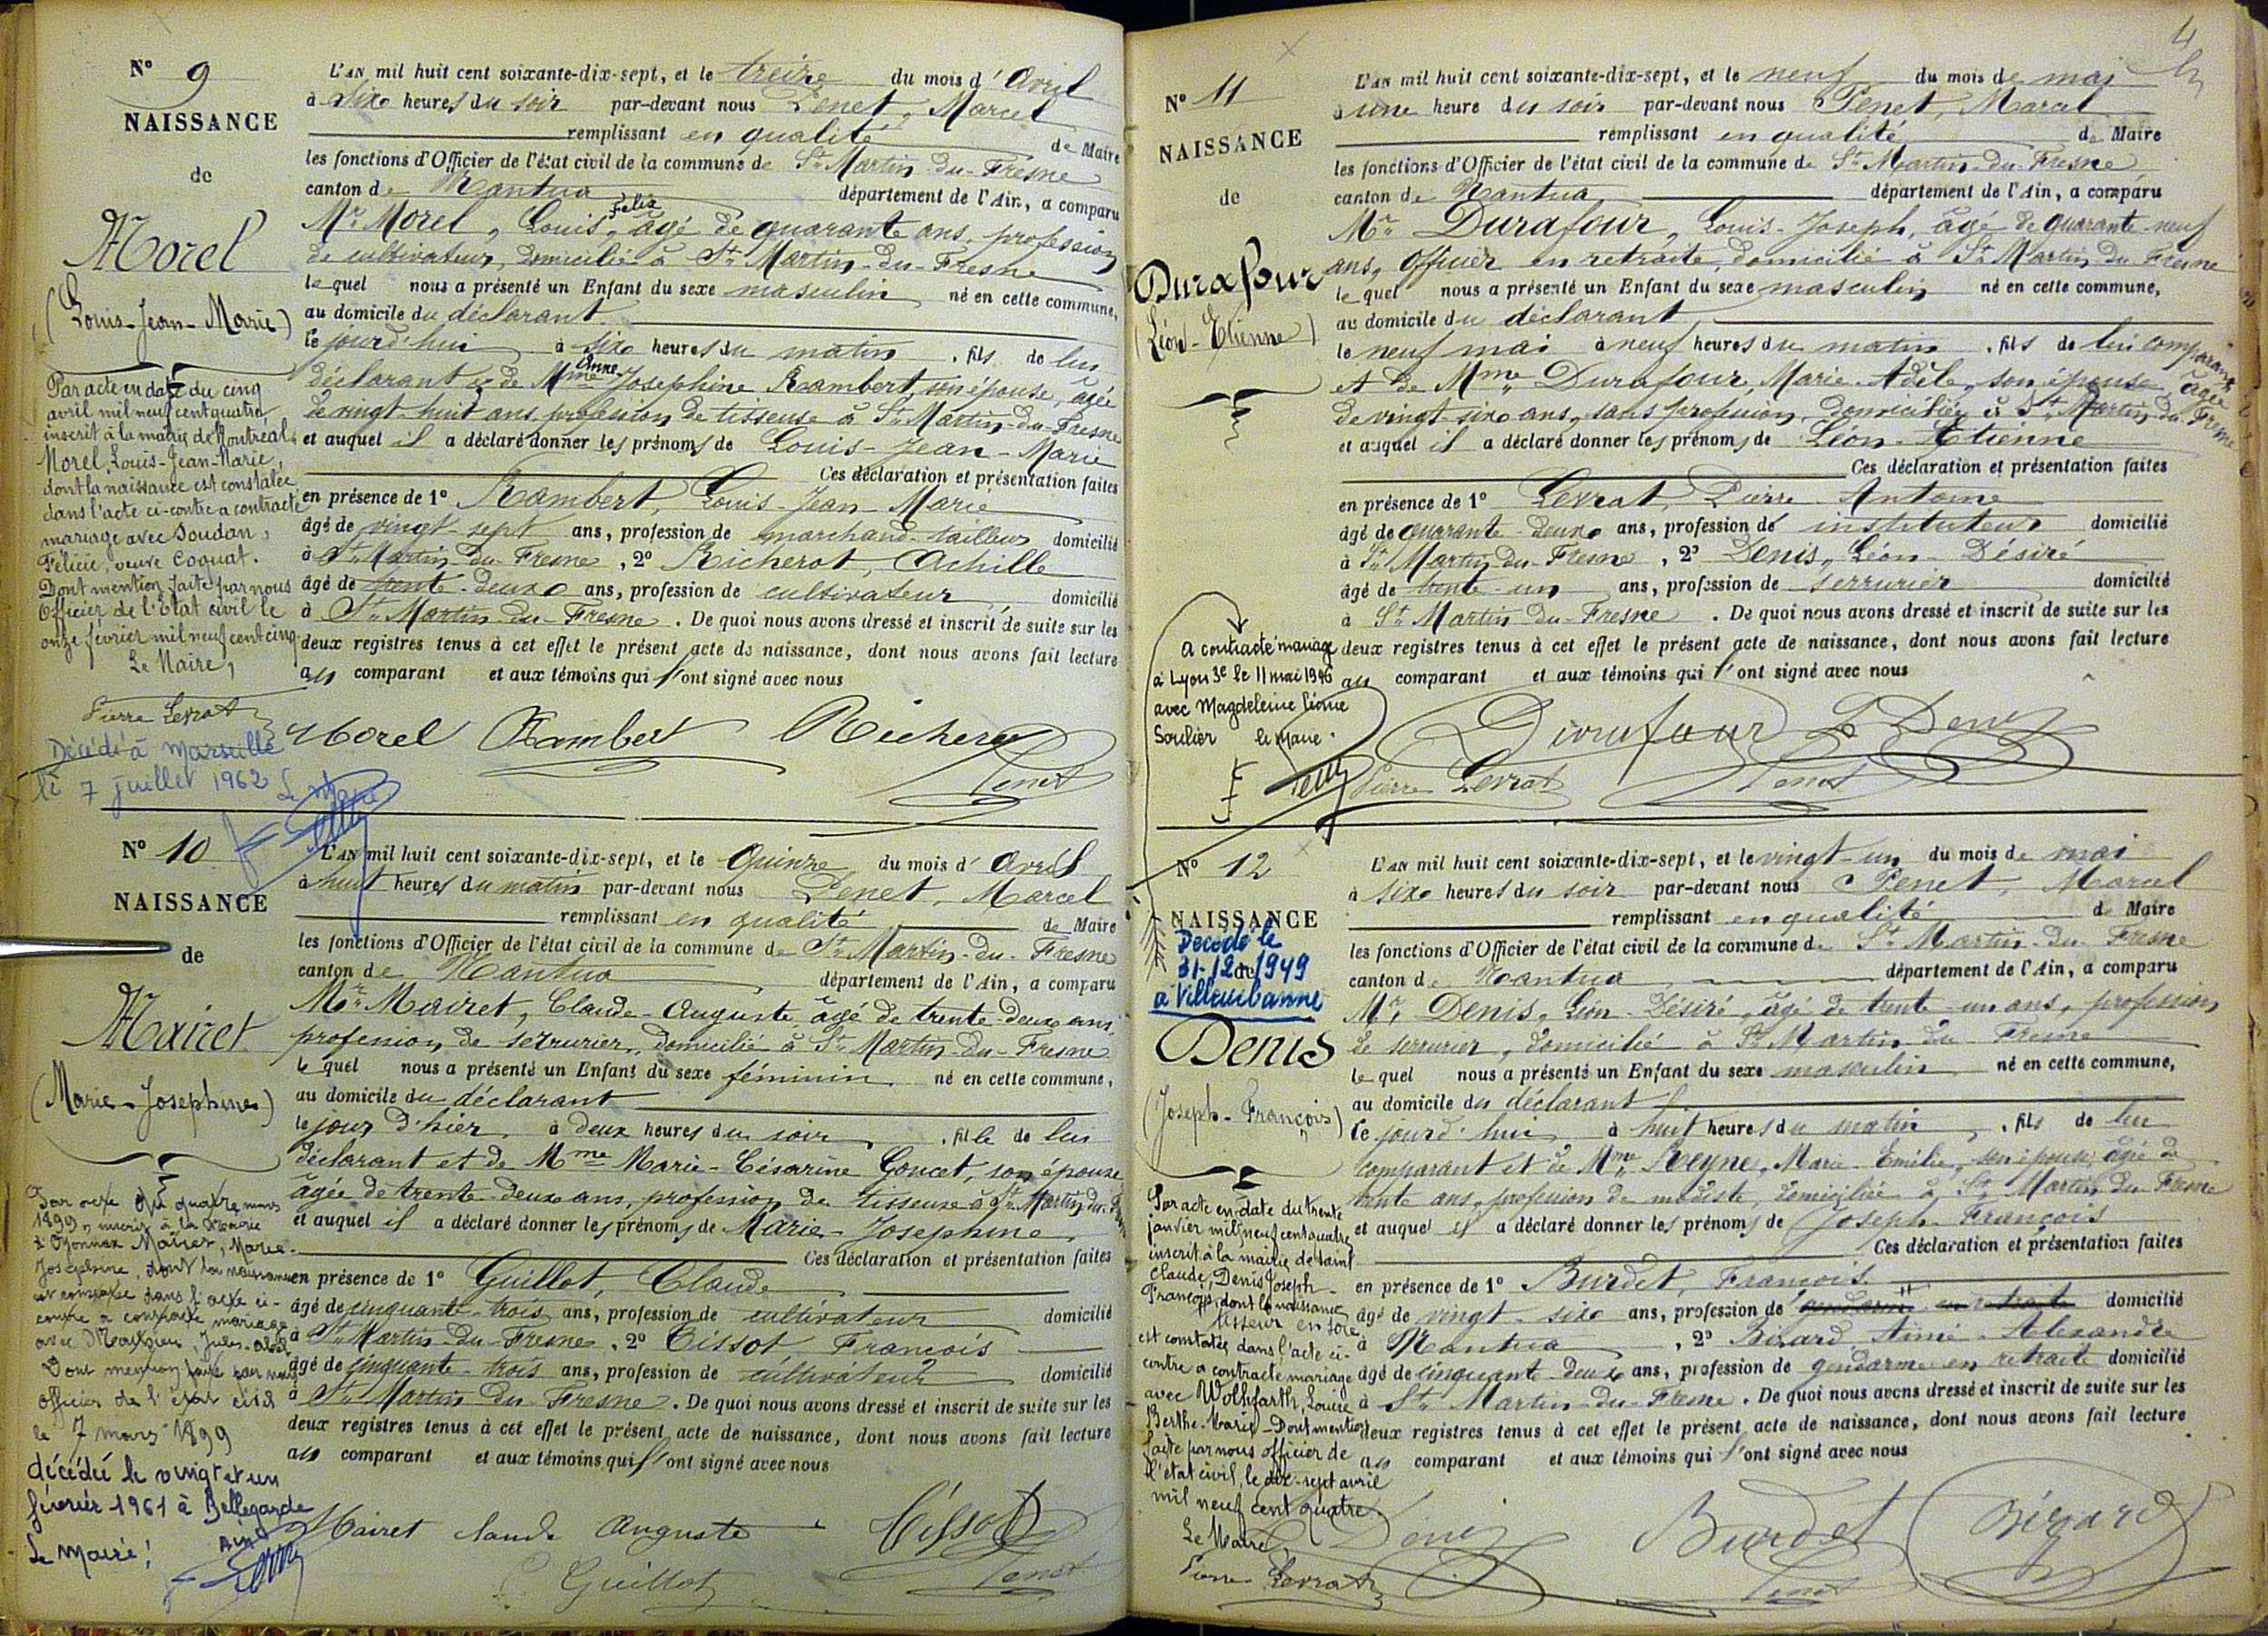 N° 9
NAISSANCE
de
Morel
(Louis-Jean-Marie)
Par acte en date du cinq
avril mil neuf cent quatre
inscrit à la mairie de Montréal
Morel, Louis-Jean-Marie,
dont la naissance est constatée
dans l'acte ci-contre a contracté
mariage avec Soudan,
Félicie, veuve Coquat.
Dont mention faite par nous
Officier de l'Etat civil le
onze février mil neuf cent cinq.
Le Maire,
Pierre Levrat
Décédé à Marseille
le 7 juillet 1962 Le Maire
L'AN mil huit cent soixante-dix-sept, et le treize du mois d'Avril
à six heures du soir par-devant nous Penet, Marcel
remplissant en qualité de Maire
les fonctions d'Officier de l'état civil de la commune de St Martin-du-Fresne
canton de Nantua département de l'Ain, a comparu
Mr Morel, Louis, Felix âgé de quarante ans, profession
de cultivateur, domicilié à St Martin-du-Fresne
lequel nous a présenté un Enfant du sexe masculin né en cette commune,
au domicile du déclarant
ce jourd'hui à six heures du matin, fils de lui
déclarant & de Mme Anne Josephine Rambert, son épouse, âgée
de vingt-huit ans, profession de tisseuse à St Martin-du-Fresne
et auquel il a déclaré donner les prénoms de Louis-Jean-Marie
Ces déclaration et présentation faites
en présence de 1° Rambert, Louis-Jean-Marie
âgé de vingt-sept ans, profession de marchand-tailleur domicilié
à St Martin-du-Fresne, 2° Richerot, Achille
âgé de trente-deux ans, profession de cultivateur domicilié
à St Martin-du-Fresne. De quoi nous avons dressé et inscrit de suite sur les
deux registres tenus à cet effet le présent acte de naissance, dont nous avons fait lecture
au comparant et aux témoins qui l'ont signé avec nous
Morel Rambert Richerot
Penet
N° 10
NAISSANCE
de
Mairet
(Marie-Josephine)
Par acte du quatre mars
1899, inscrit à la Mairie
d'Oyonnax Mairet, Marie-
Joséphine, dont la naissance
est constatée dans l'acte ci-
contre a contracté mariage
avec Mathieu, Jules-
Dont mention faite par nous
officier de l'état civil
le 7 mars 1899
décédée le vingt et un
février 1961 à Bellegarde
Ain
Le Maire!
L'AN mil huit cent soixante-dix-sept, et le Quinze du mois d'Avril
à huit heures du matin par-devant nous Penet, Marcel
remplissant en qualité de Maire
les fonctions d'Officier de l'état civil de la commune de St Martin-du-Fresne
canton de Nantua département de l'Ain, a comparu
Mr Mairet, Claude-Auguste, âgé de trente-deux ans,
profession de serrurier, domicilié à St Martin-du-Fresne
lequel nous a présenté un Enfant du sexe féminin né en cette commune,
au domicile du déclarant
le jour d'hier, à deux heures du soir, fille de lui
déclarant et de Mme Marie-Césarine Goucet, son épouse,
âgée de trente-deux ans, profession de tisseuse à St Martin-du-
et auquel il a déclaré donner les prénoms de Marie-Josephine,
Ces déclaration et présentation faites
en présence de 1° Guillot, Claude
âgé de cinquante-trois ans, profession de cultivateur domicilié
à St Martin-du-Fresne, 2° Tissot, François
âgé de cinquante-trois ans, profession de cultivateur domicilié
à St Martin-du-Fresne. De quoi nous avons dressé et inscrit de suite sur les
deux registres tenus à cet effet le présent acte de naissance, dont nous avons fait lecture
au comparant et aux témoins qui l'ont signé avec nous
Mairet Claude Auguste Tissot
C. Guillot Penet
4
N° 11
NAISSANCE
de
Durafour
(Léon-Etienne)
A contracté mariage
à Lyon 3e le 11 mai 1946
avec Magdeleine Léonie
Soulier le Maire.
L'AN mil huit cent soixante-dix-sept, et le neuf du mois de mai
à une heure du soir par-devant nous Penet, Marcel
remplissant en qualité de Maire
les fonctions d'Officier de l'état civil de la commune de St Martin-du-Fresne
canton de Nantua département de l'Ain, a comparu
Mr Durafour, Louis-Joseph, âgé de quarante-neuf
ans, Officier en retraite, domicilié à St Martin du Fresne
lequel nous a présenté un Enfant du sexe masculin né en cette commune,
au domicile du déclarant,
le neuf mai à neuf heures du matin, fils de lui comparant
et de Mme Durafour, Marie-Adèle, son épouse, âgée
de vingt-six ans, sans profession, domiciliée à St Martin-du-Fresne
et auquel il a déclaré donner les prénoms de Léon-Etienne
Ces déclaration et présentation faites
en présence de 1° Levrat, Pierre-Antoine
âgé de quarante-deux ans, profession de instituteur domicilié
à St Martin-du-Fresne, 2° Denis, Léon-Désiré
âgé de trente-un ans, profession de serrurier domicilié
à St Martin-du-Fresne. De quoi nous avons dressé et inscrit de suite sur les
deux registres tenus à cet effet le présent acte de naissance, dont nous avons fait lecture
au comparant et aux témoins qui l'ont signé avec nous
Durafour L Denis
Pierre Levrat Penet
N° 12
NAISSANCE
de
Décédé le
31-12-1949
à Villeurbanne
Denis
(Joseph-François)
Par acte en date du trente
janvier mil neuf cent quatre
inscrit à la mairie de Saint
Claude, Denis Joseph-
François, dont la naissance
tisseur en soie
est constatée dans l'acte ci-
contre a contracté mariage
avec Wolhfarth, Louise
Berthe-Marie - Dont mention
faite par nous officier de
l'état civil, le dix-sept avril
mil neuf cent quatre.
Le Maire,
Pierre Levrat
L'AN mil huit cent soixante-dix-sept, et le vingt-un du mois de mai
à six heures du soir par-devant nous Penet, Marcel
remplissant en qualité de Maire
les fonctions d'Officier de l'état civil de la commune de St Martin-du-Fresne
canton de Nantua département de l'Ain, a comparu
Mr Denis, Léon-Désiré, âgé de trente-un ans, profession
de serrurier, domicilié à St Martin du Fresne
lequel nous a présenté un Enfant du sexe masculin né en cette commune,
au domicile du déclarant
ce jourd'hui à huit heures du matin, fils de lui
comparant et de Mme Reyne, Marie-Emilie, son épouse, âgée de
trente ans, profession de modiste, domiciliée à St Martin du Fresne
et auquel il a déclaré donner les prénoms de Joseph-François
Ces déclaration et présentation faites
en présence de 1° Burdet, François
âgé de vingt-six ans, profession de gendarme en retraite domicilié
à Nantua, 2° Bizard Aimé-Alexandre
âgé de cinquante-deux ans, profession de gendarme en retraite domicilié
à St Martin-du-Fresne. De quoi nous avons dressé et inscrit de suite sur les
deux registres tenus à cet effet le présent acte de naissance, dont nous avons fait lecture
au comparant et aux témoins qui l'ont signé avec nous
Denis Burdet Bizard
Penet